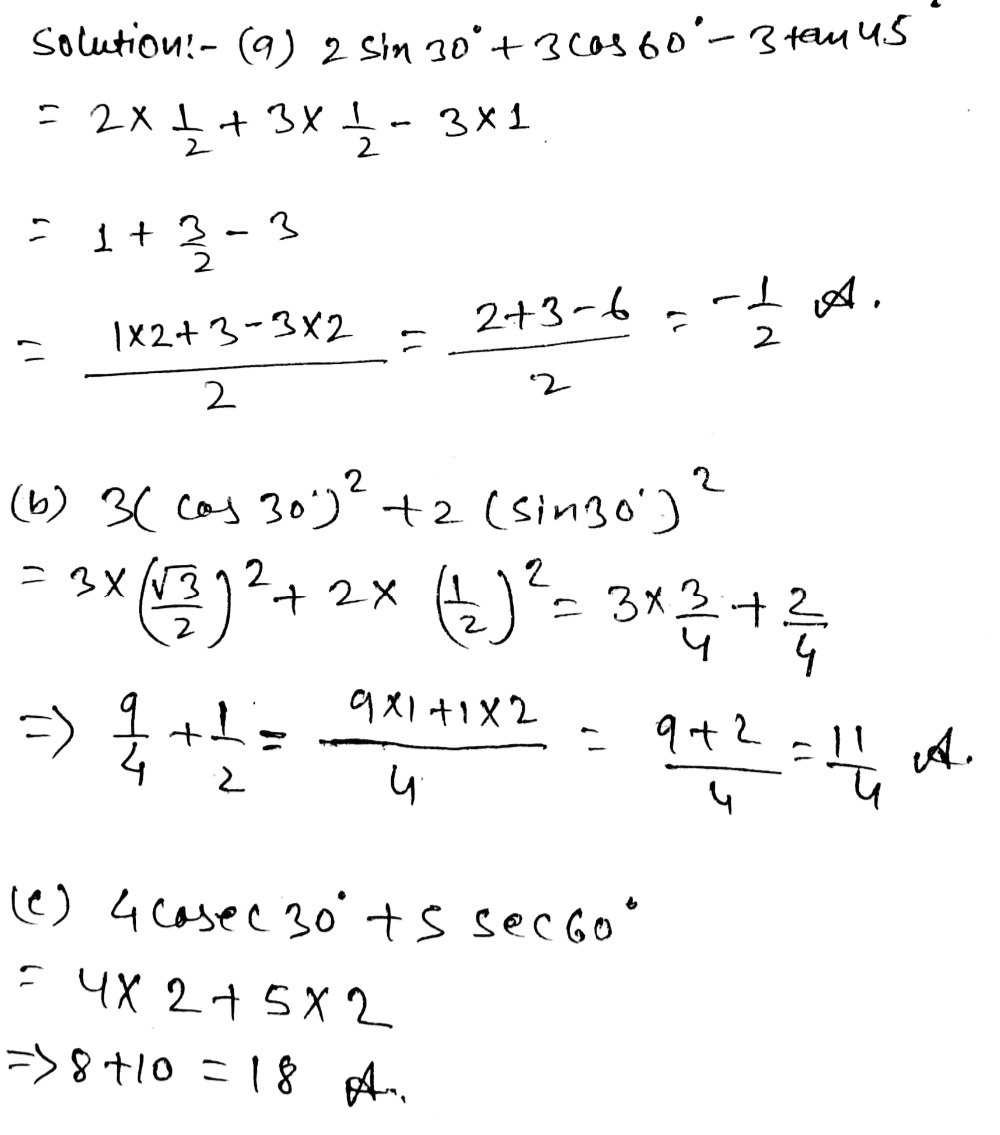 Solution:- (a) 2 sin 30° + 3 cos 60° - 3 tan 45°
= 2 × 1/2 + 3 × 1/2 - 3 × 1
= 1 + 3/2 - 3
= (1×2+3-3×2)/2 = (2+3-6)/2 = -1/2 A.
(b) 3( cos 30°)² + 2 (sin30°)²
= 3 × (√3/2)² + 2 × (1/2)² = 3 × 3/4 + 2/4
=> 9/4 + 1/2 = (9×1+1×2)/4 = (9+2)/4 = 11/4 A.
(c) 4 cosec 30° + 5 sec 60°
= 4 × 2 + 5 × 2
=> 8 + 10 = 18 A.